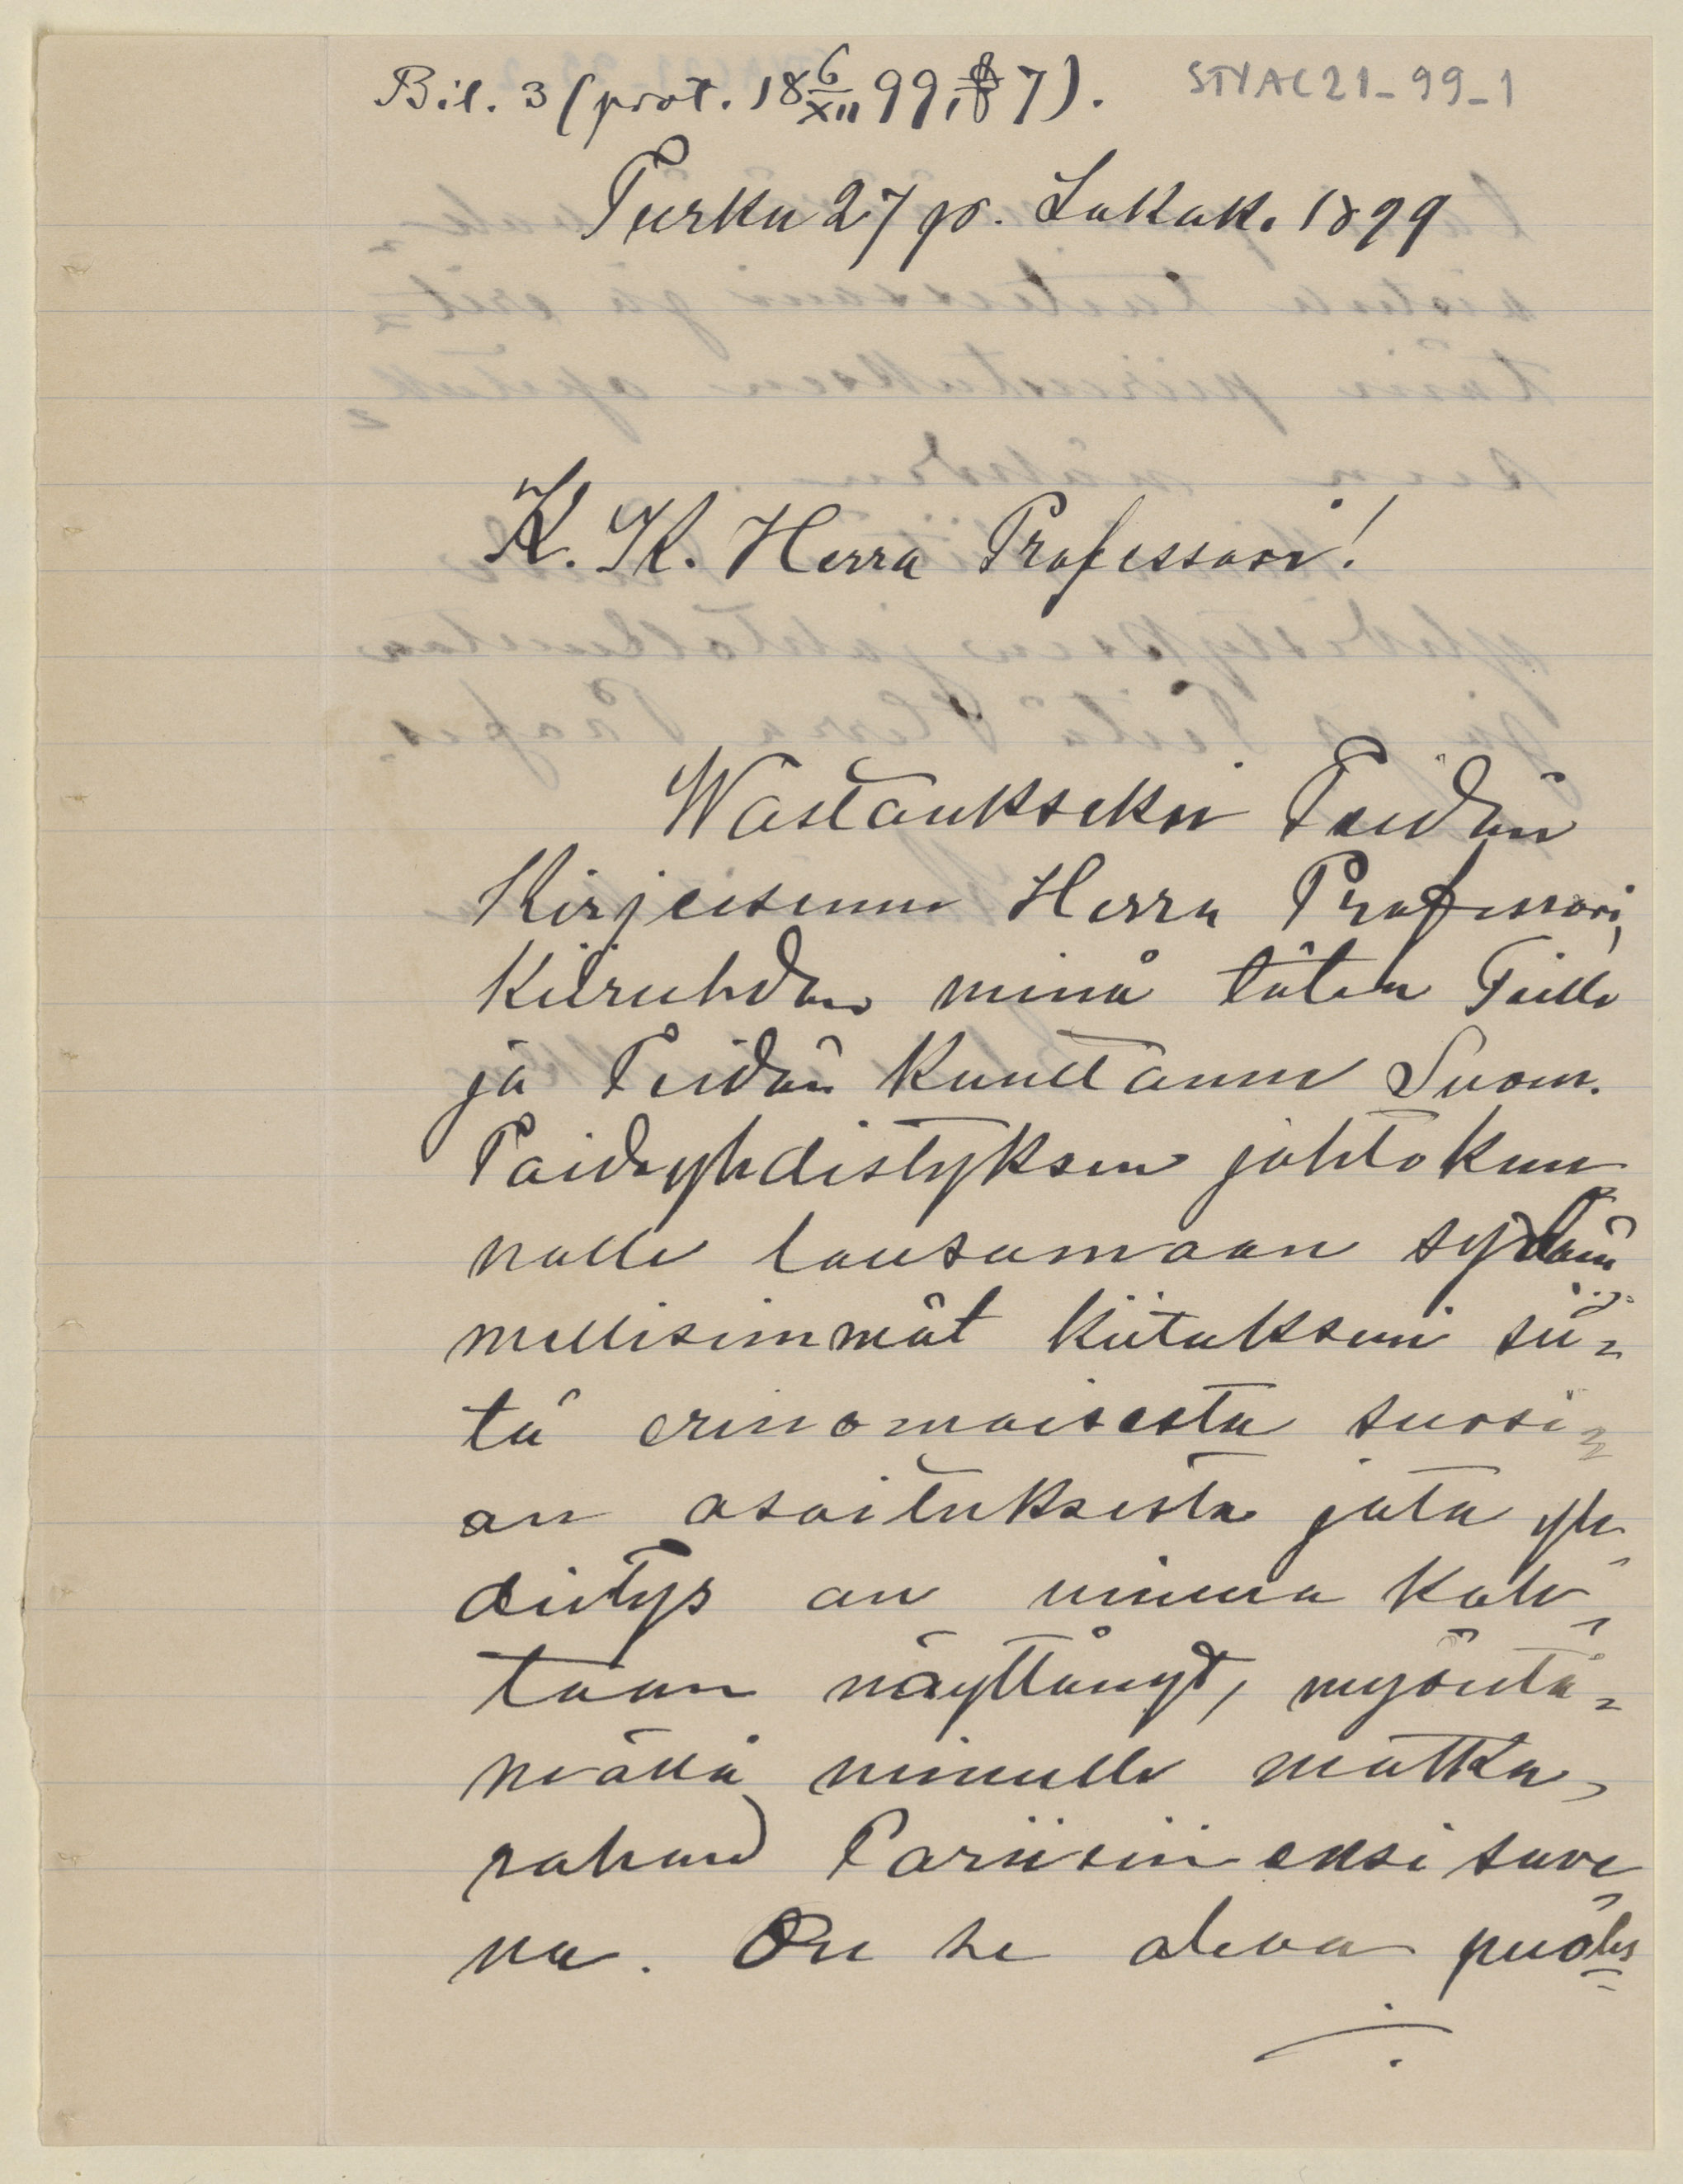 Bil. 3 (prot. 18 6/XII 99, § 7).
STYAC21_99_1
Turku 27 p. Lokak. 1899
K. K. Herra Professori!
Wastaukseksi Teidän
Kirjeesenne Herra Professori,
Kiiruhdan minä täten Teille
ja Teidän Kauttanne Suom.
Taideyhdistyksen johtokun
nalle lausumaan sydäm
mellisimmät kiitokseni sii=
tä erinomaisesta suosi=
on osoituksesta jota yh
distys on minua koh-
taan näyttänyt, myöntä=
mällä minulle matka-
rahan Pariisiin ensi suve
na. On se oleva puoles